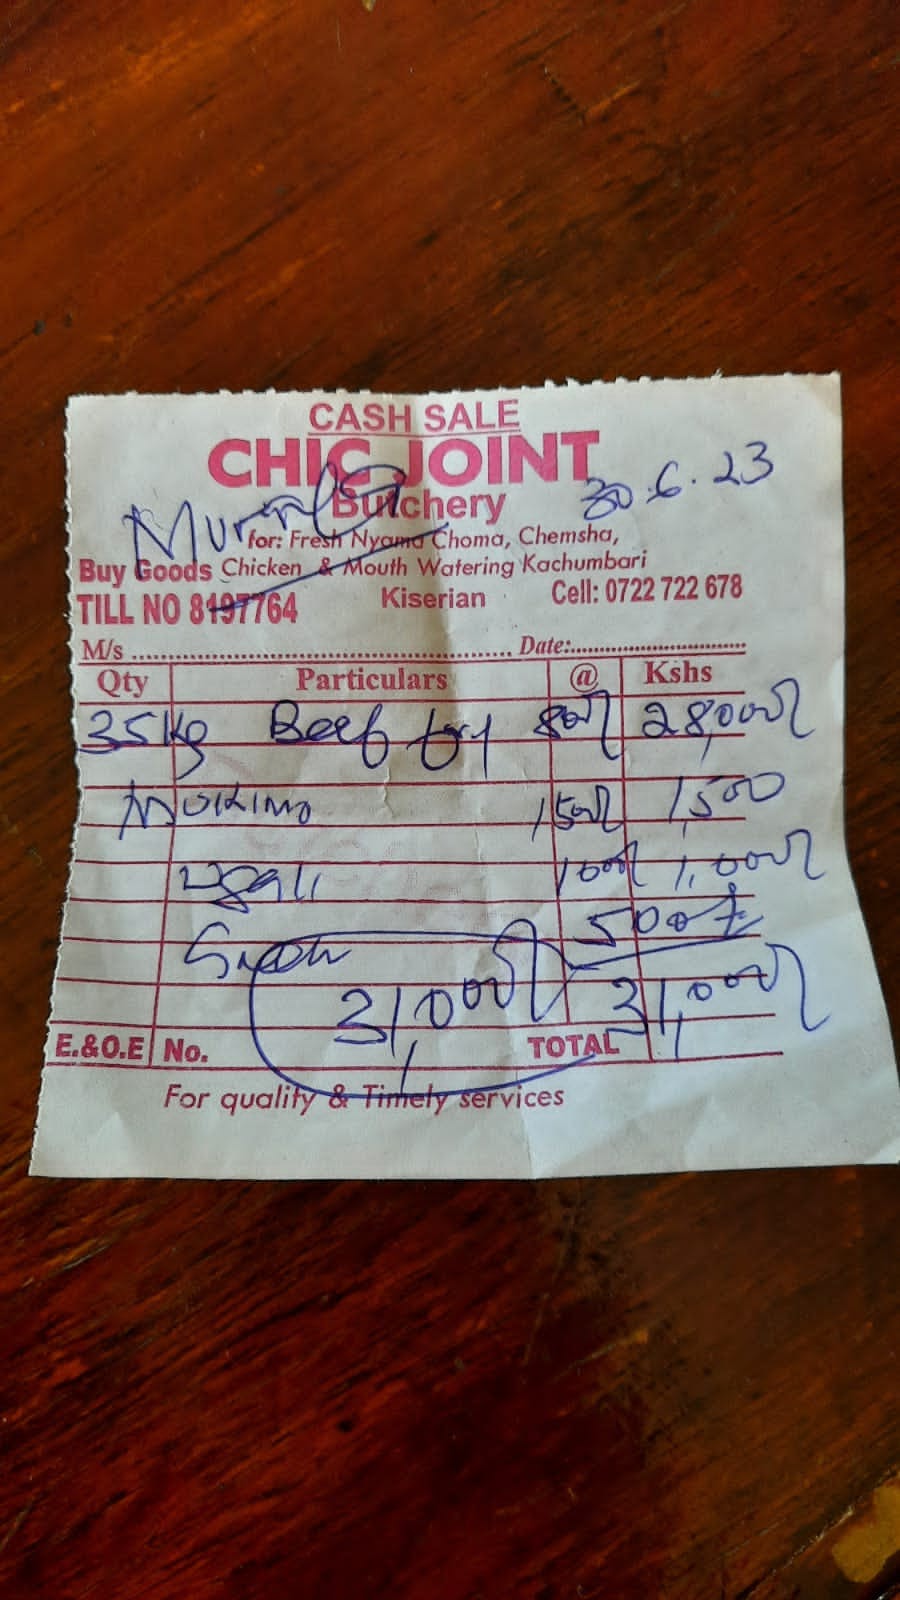 CASH SALE
CHIC JOINT
Butchery
30.6.23
for: Fresh Nyama Choma, Chemsha,
Buy Goods Chicken & Mouth Watering Kachumbari
TILL NO 8197764 Kiserian Cell: 0722 722 678
M/s ........ Date:........
Qty Particulars @ Kshs
35kg Beef fry 800/ 28,000/
Mukimo 1500/ 1,500
ugali 1000/ 1,000/
500/=
31,000/ 31,000/
E.&O.E No. TOTAL
For quality & Timely services